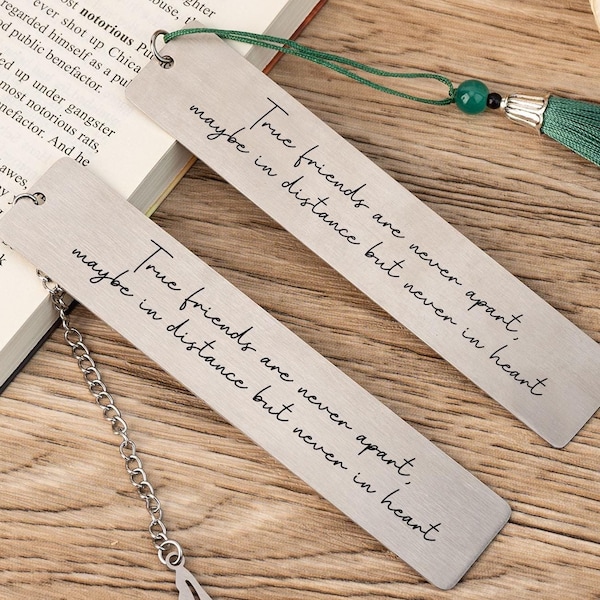 most notorious Pu
ever shot up Chica
regarded himself as a pu
public benefactor.
ed up under gangster
most notorious rats,
nefactor. And he
awes,
True friends are never apart,
maybe in distance but never in heart
True friends are never apart,
maybe in distance but never in heart